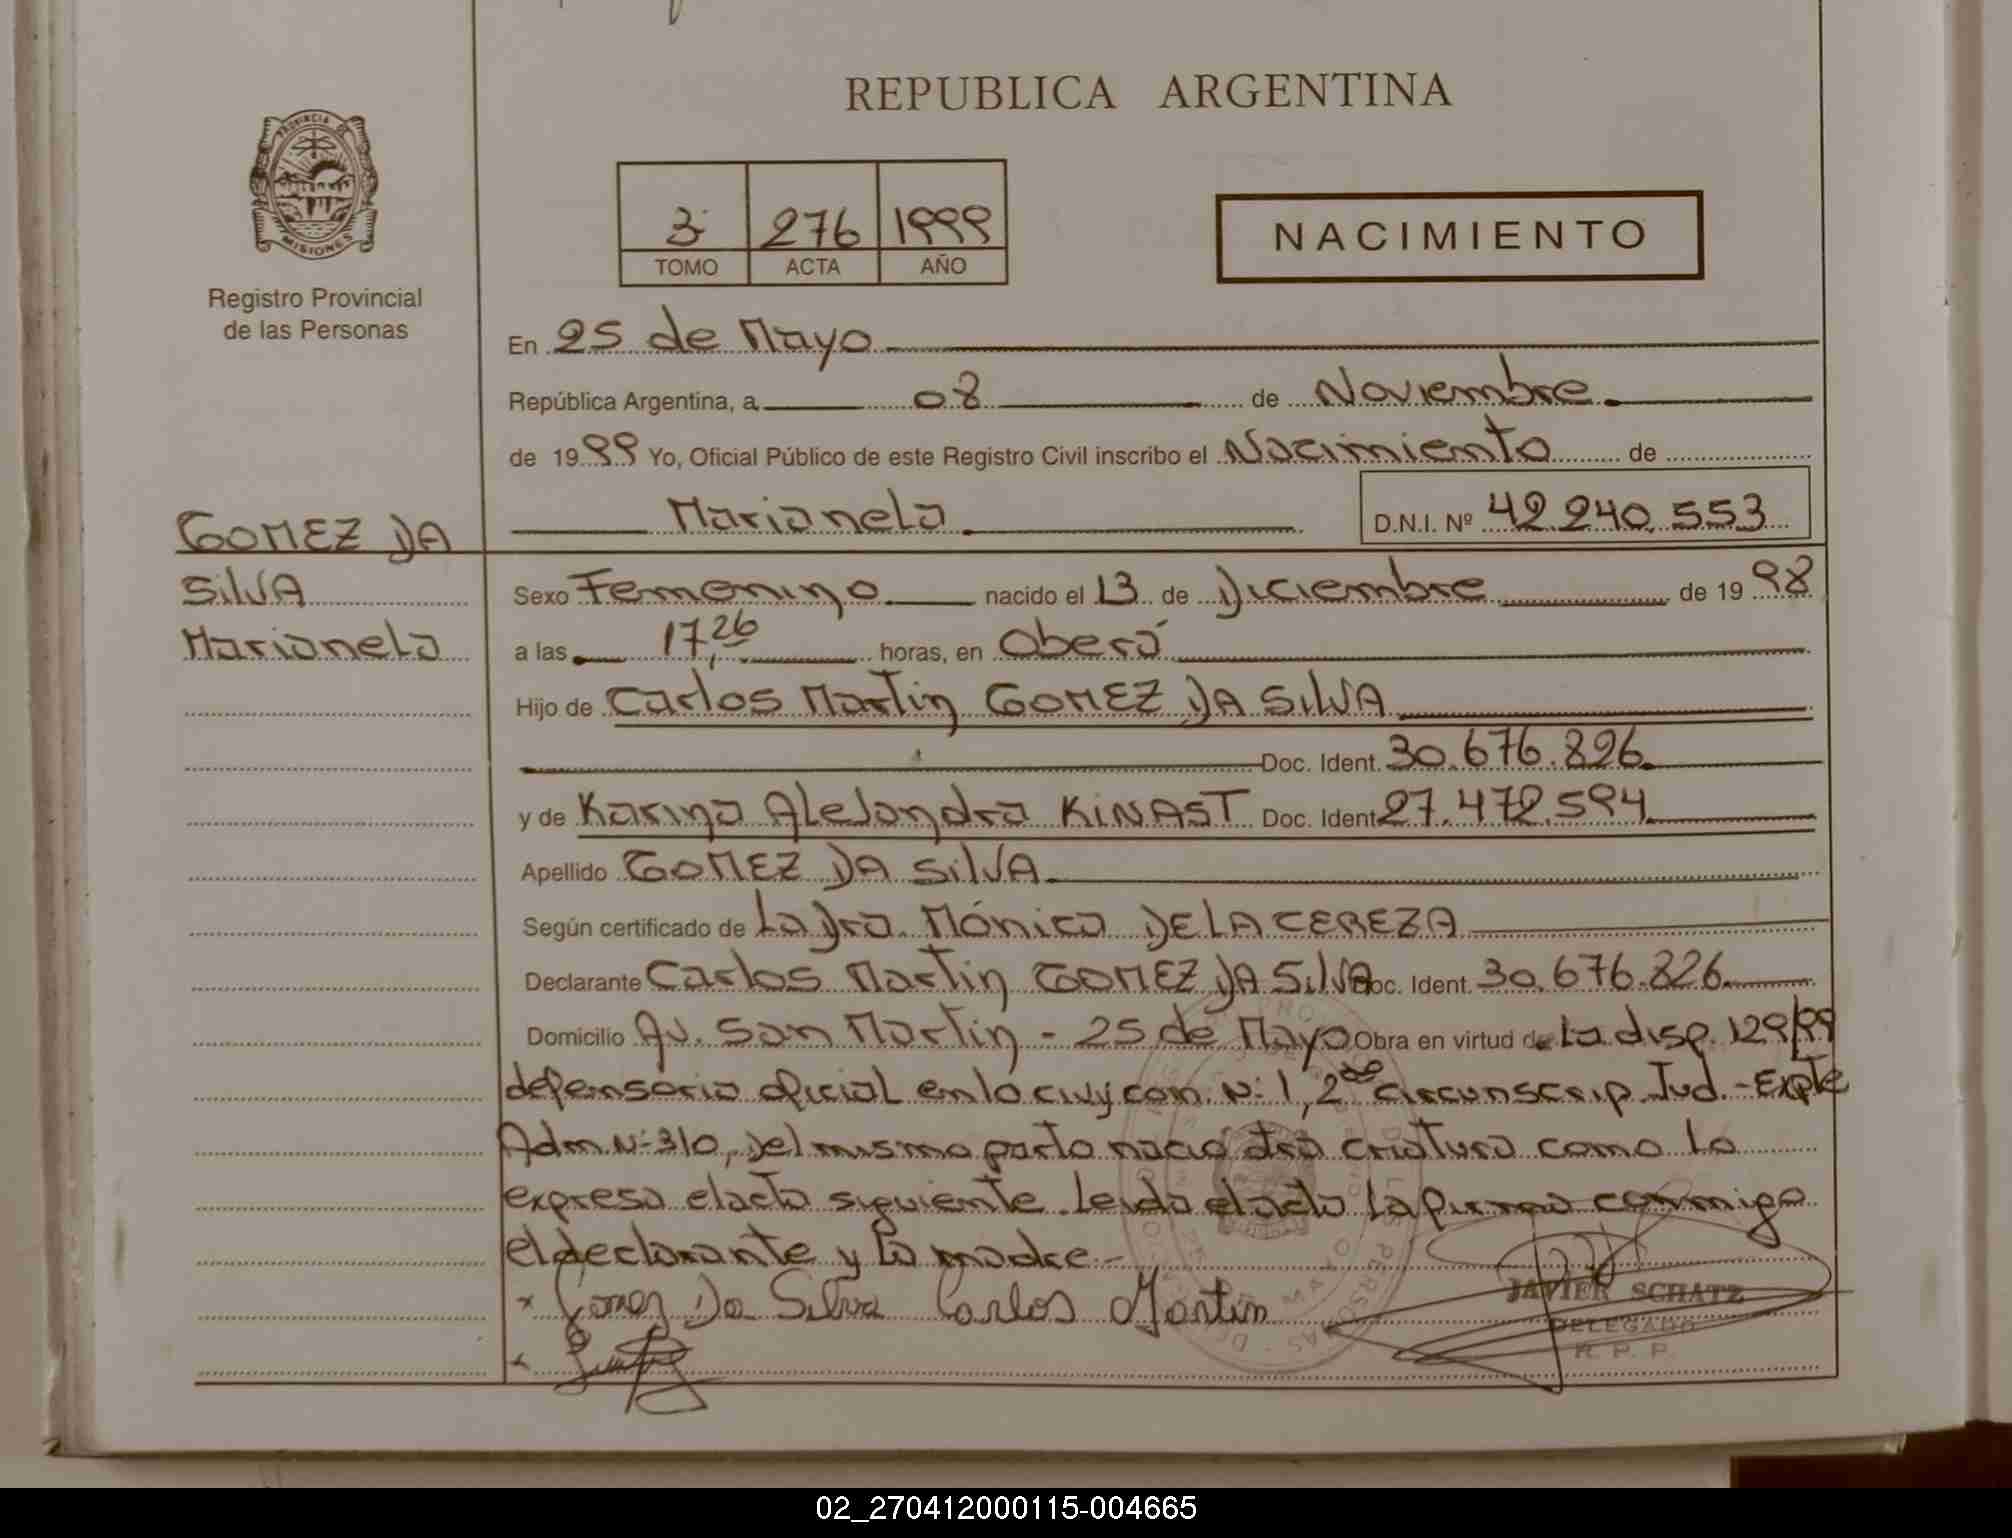 REPUBLICA ARGENTINA
PROVINCIA DE
MISIONES
Registro Provincial
de las Personas
3 276 1999
TOMO ACTA AÑO
NACIMIENTO
En 25 de Mayo
República Argentina, a 08 de Noviembre
de 1999 Yo, Oficial Público de este Registro Civil inscribo el Nacimiento de
Marianela D.N.I. Nº 42.240.553
GOMEZ DA
SilVA
Marianela
Sexo Femenino nacido el 13 de Diciembre de 1998
a las 17,26 horas, en Oberá
Hijo de Carlos Martin GOMEZ DA SilVA
Doc. Ident. 30.676.826
y de Karina Alejandra KiNAST Doc. Ident 27.472.594
Apellido GOMEZ DA SilVA
Según certificado de La Dra. Mónica DE LA CEREZA
Declarante Carlos Martin GOMEZ DA SilVA Doc. Ident. 30.676.826
Domicilio Av. San Martin - 25 de Mayo Obra en virtud de La disp. 129/99
defensoria oficial en lo civ y com. Nº 1, 2da circunscrip. Jud. - Expte
Adm. Nº 310, Del mismo parto nació otra criatura como lo
expresa el acta siguiente. Leida el acta la firma conmigo
el declarante y la madre.-
x Gomez Da Silva Carlos Martin
x
JAVIER SCHATZ
DELEGADO
R. P. P.
02_270412000115-004665